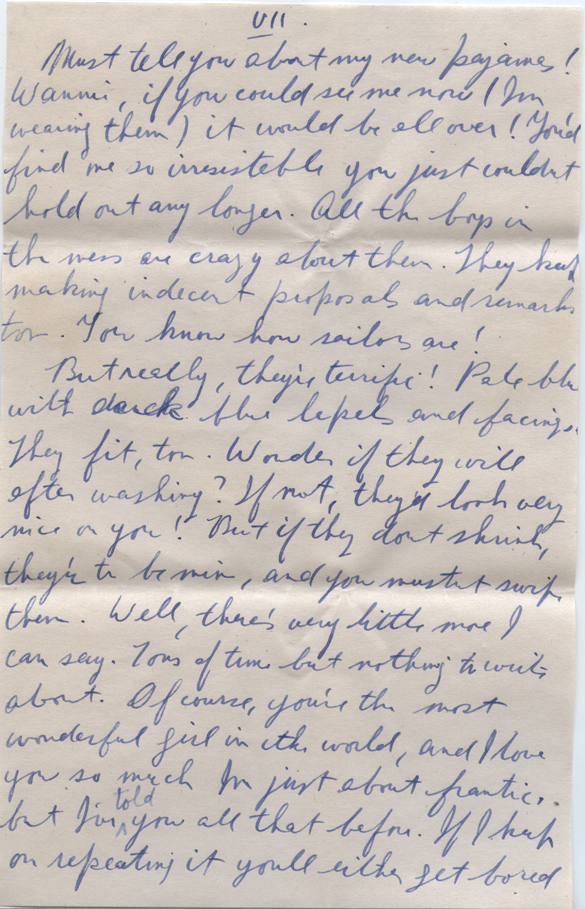 VII.
Must tell you about my new pajamas!
Wanni, if you could see me now (I'm
wearing them) it would be all over! You'd
find me so irresistible you just couldn't
hold out any longer. All the boys in
the mess are crazy about them. They keep
making indecent proposals and remarks
too. You know how sailors are!
But really, they're terrific! Pale blue
with dark blue lapels and facings.
They fit, too. Wonder if they will
after washing? If not, they'd look very
nice on you! But if they don't shrink,
they're to be mine, and you mustn't swipe
them. Well, there's very little more I
can say. Tons of time but nothing to write
about. Of course, you're the most
wonderful girl in the world, and I love
you so much I'm just about frantic,
but I've told you all that before. If I keep
on repeating it you'll either get bored